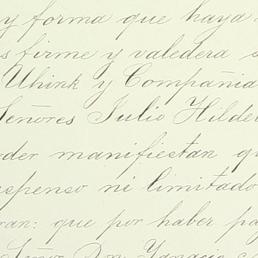 y forma que haya
s firme y valedera
Uhink y Compañia
Señores Julio Hilde
der manifiestan q
spenso ni limitado
ran: que por haber pa
Señor Don Ygnacio